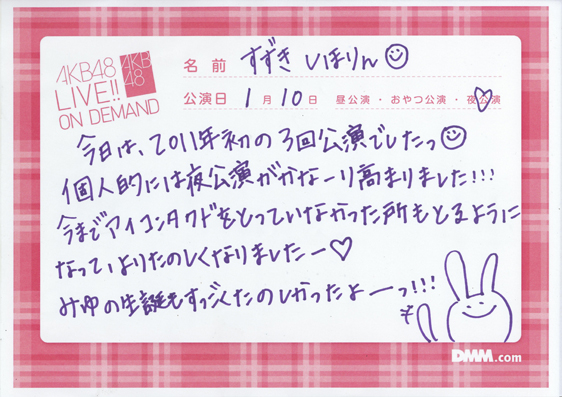 AKB48
LIVE!!
ON DEMAND
AKB
48
名前 すずき しほりん
公演日 1月10日 昼公演・おやつ公演・夜公演
今日は、2011年初の3回公演でしたっ
個人的には夜公演がかなーり高まりました!!!
今までアイコンタクトをとっていなかった所もとるように
なっていよりたのしくなりましたー♡
みゆの生誕もすっごくたのしかったよーっ!!!
DMM.com